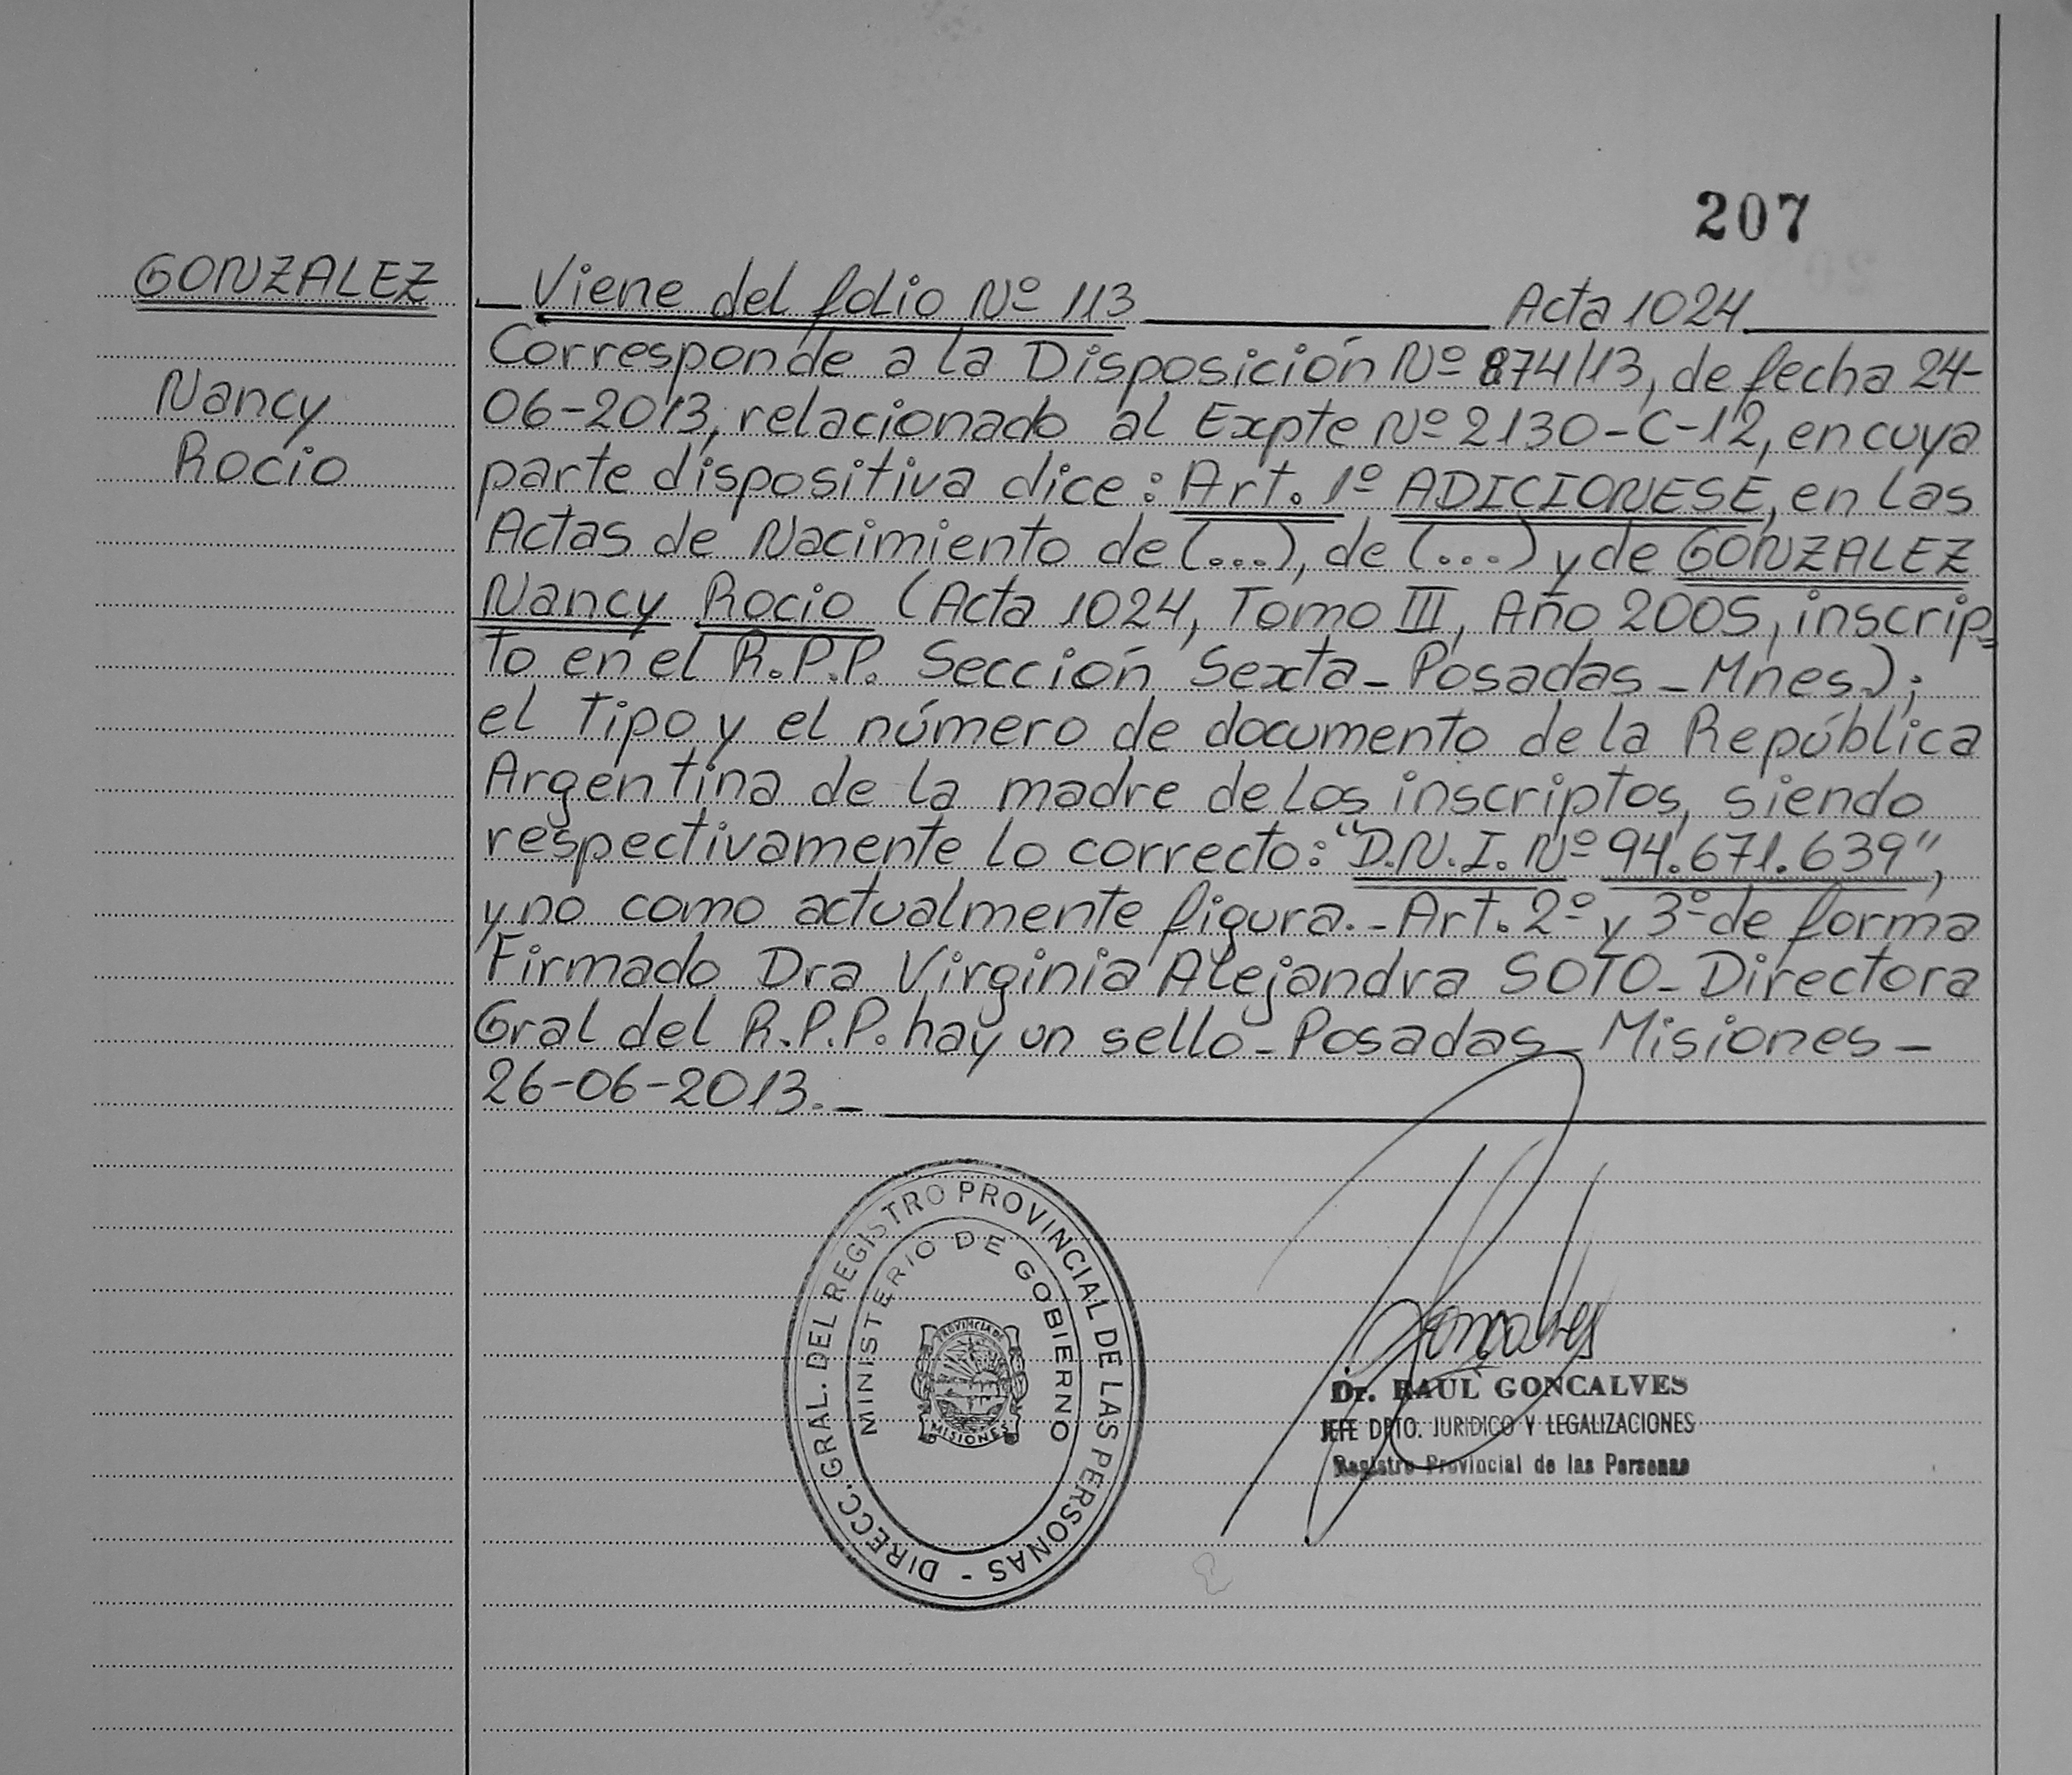 207
GONZALEZ
Nancy
Rocio
Viene del folio Nº 113 Acta 1024
Corresponde a la Disposición Nº 874/13, de fecha 24-
06-2013, relacionado al Expte Nº 2130-C-12, en cuya
parte dispositiva dice: Art. 1º ADICIONESE, en las
Actas de Nacimiento de (...), de (...) y de GONZALEZ
Nancy Rocio (Acta 1024, Tomo III, Año 2005, inscrip=
to en el R.P.P. Sección Sexta - Posadas - Mnes);
el Tipo y el número de documento de la República
Argentina de la madre de los inscriptos, siendo
respectivamente lo correcto: "D.N.I. Nº 94.671.639",
y no como actualmente figura.- Art. 2º y 3º de forma
Firmado Dra Virginia Alejandra SOTO - Directora
Gral del R.P.P. hay un sello - Posadas - Misiones -
26-06-2013.-
DIRECC. GRAL. DEL REGISTRO PROVINCIAL DE LAS PERSONAS -
MINISTERIO DE GOBIERNO
PROVINCIA DE
MISIONES
Gonçalves
Dr. RAUL GONCALVES
JEFE DPTO. JURIDICO Y LEGALIZACIONES
Registro Provincial de las Personas